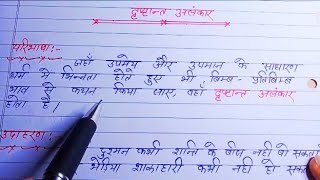 दृष्टान्त अलंकार
परिभाषा:-
जहाँ उपमेय और उपमान के साधारण
धर्म में भिन्नता होते हुए भी बिम्ब-प्रतिबिम्ब
भाव से कथन किया जाए, वहाँ दृष्टान्त अलंकार
होता है।
उदाहरण:-
दुश्मन कभी शान्ति के बीज नहीं बो सकता
भेड़िया शाकाहारी कभी नहीं हो सकता